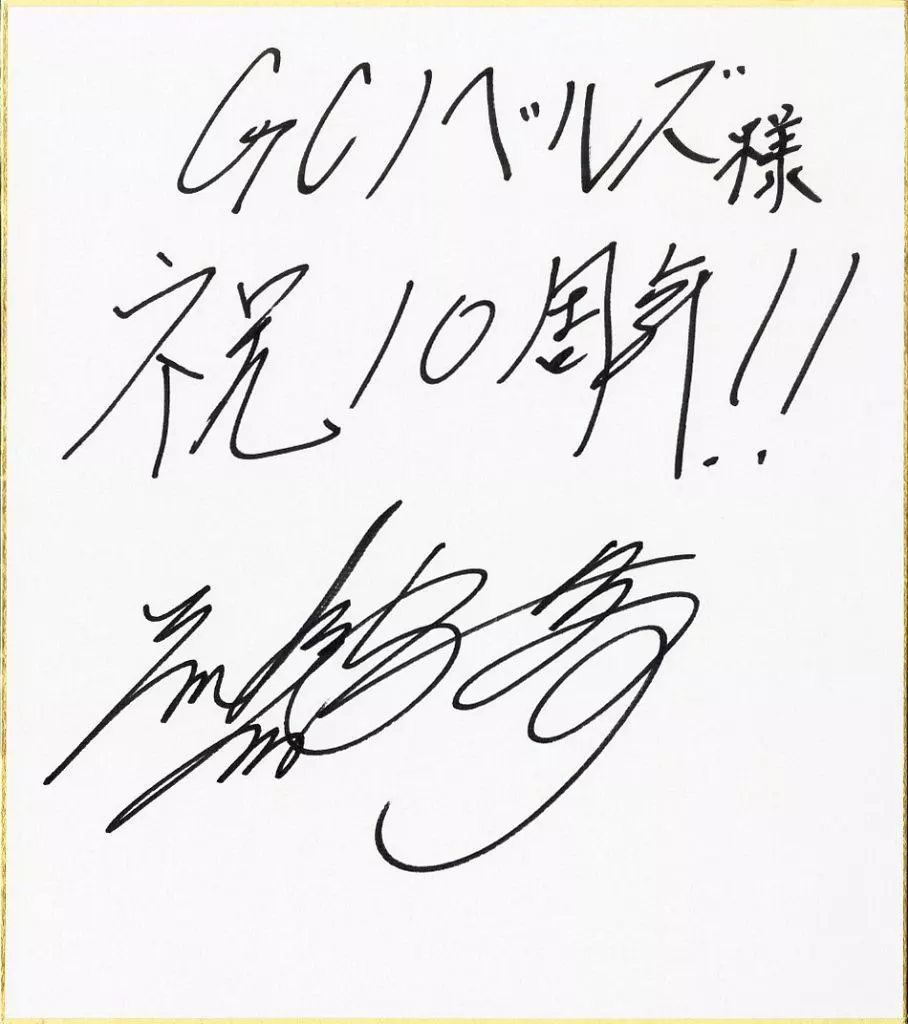 GCノベルズ様
祝10周年!!